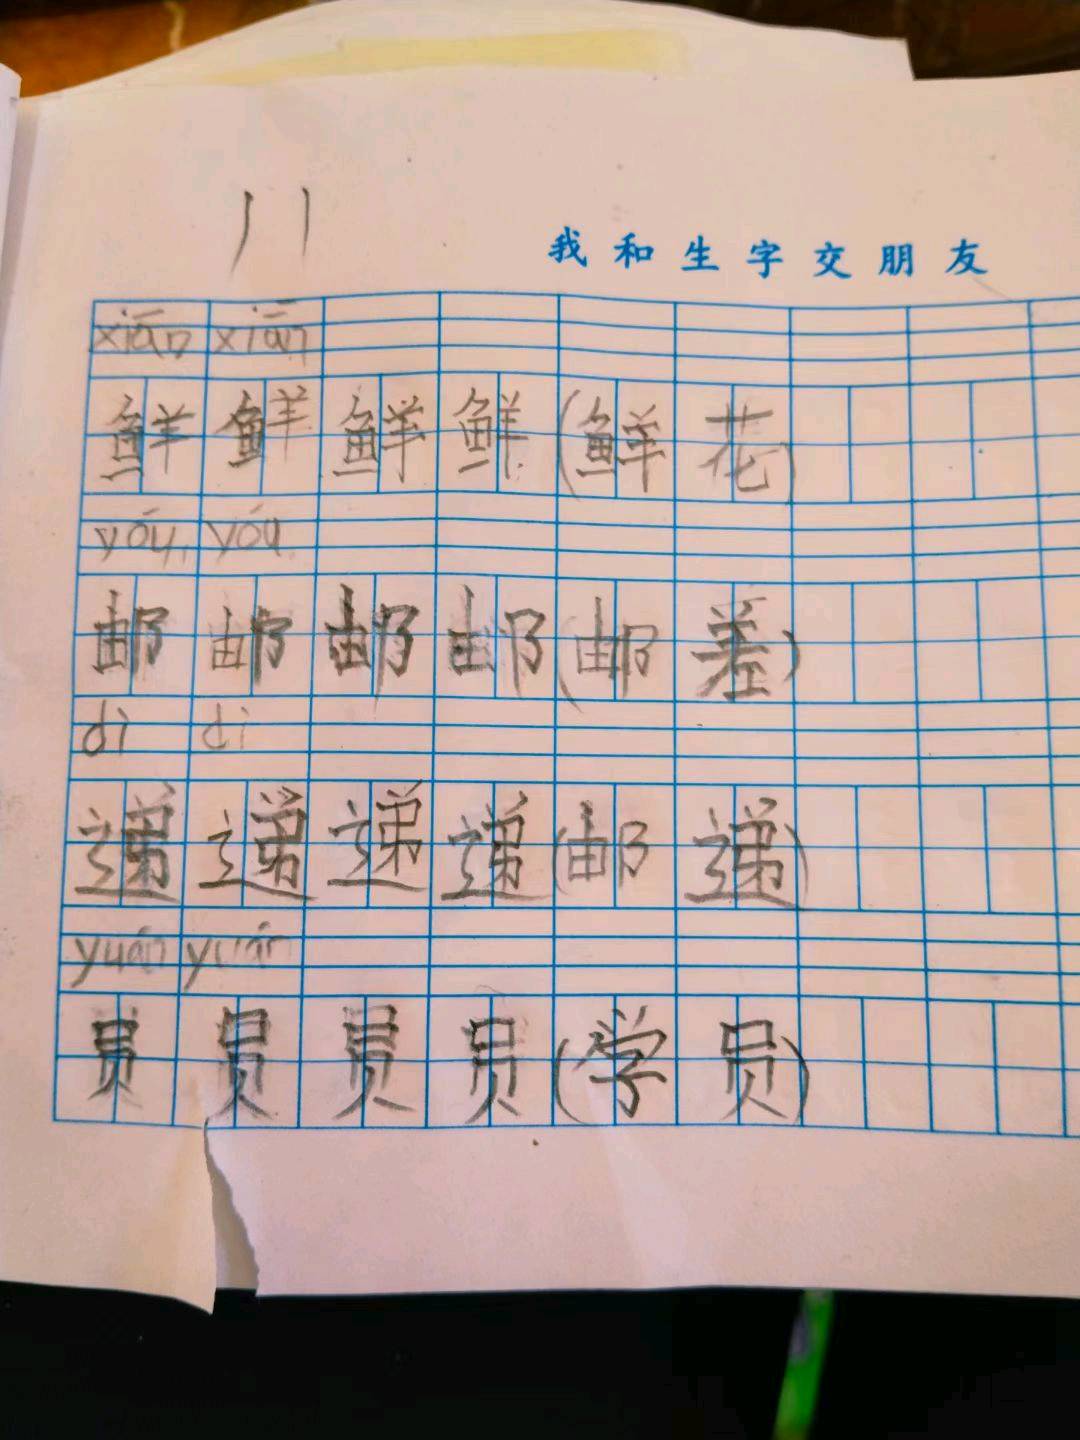 我和生字交朋友
xiān xiān
鲜 鲜 鲜 鲜 (鲜 花)
yóu yóu
邮 邮 邮 邮 (邮 差)
dì dì
递 递 递 递 (邮 递)
yuán yuán
员 员 员 员 (学 员)